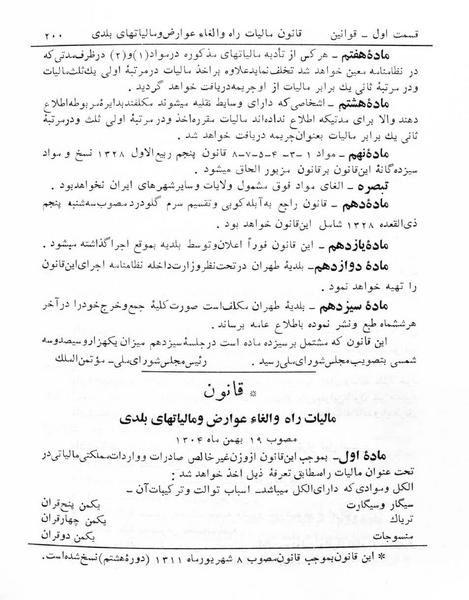 قسمت اول ـ قوانین قانون مالیات راه والغاء عوارض ومالیاتهای بلدی ۲۰۰
مادهٔ هفتم ـ هر کس از تأدیه مالیاتهای مذکوره درمواد(۱)و(۲) درظرف مدتی که
در نظامنامه معین خواهد شد تخلف نماید علاوه براخذ مالیات درمرتبهٔ اولی یك ثلث مالیات
ودر مرتبهٔ ثانی یك برابر مالیات از او جریمه دریافت خواهد گردید.
مادهٔ هشتم ـ اشخاصی که دارای وسایط نقلیه میشوند مکلفند بدایرهٔ مربوطه اطلاع
دهند والا برای مدتیکه اطلاع نداده‌اند مالیات مقرره اخذ ودرمرتبهٔ اولی ثلث ودرمرتبهٔ
ثانی یك برابر مالیات بعنوان جریمه دریافت خواهد شد.
مادهٔ نهم ـ مواد ۱-۳-۴-۵-۷-۸ قانون پنجم ربیع الاول ۱۳۲۸ نسخ و مواد
سیزده گانهٔ این قانون برقانون مزبور الحاق میشود.
تبصره ـ الغای مواد فوق مشمول ولایات وسایر شهرهای ایران نخواهد بود.
مادهٔ دهم ـ قانون راجع به آبله کوبی وتقسیم سرم گلودرد مصوب سه شنبه پنجم
ذی القعده ۱۳۲۸ شامل این قانون خواهد بود.
مادهٔ یازدهم ـ این قانون فوراً اعلان وتوسط بلدیه بموقع اجرا گذاشته میشود.
مادهٔ دوازدهم ـ بلدیهٔ طهران درتحت نظر وزارت داخله نظامنامه اجرای این قانون
را تهیه خواهد نمود.
مادهٔ سیزدهم ـ بلدیهٔ طهران مکلف است صورت کلیهٔ جمع وخرج خودرا در آخر
هر ششماه طبع ونشر نموده باطلاع عامه برساند.
این قانون که مشتمل بر سیزده ماده است درجلسهٔ سیزدهم میزان یکهزار و سیصد و سه
شمسی بتصویب مجلس شورای ملی رسید. رئیس مجلس شورای ملی ـ مؤتمن الملك
* قانون
مالیات راه والغاء عوارض ومالیاتهای بلدی
مصوب ۱۹ بهمن ماه ۱۳۰۴
مادهٔ اول ـ بموجب این قانون از وزن غیر خالص صادرات و واردات مملکتی مالیاتی در
تحت عنوان مالیات راه مطابق تعرفهٔ ذیل اخذ خواهد شد:
الکل وموادی که دارای الکل میباشد ـ اسباب توالت و ترکیبات آن ـ
سیگار وسیگارت یکمن پنج قران
تریاك یکمن چهار قران
منسوجات یکمن دو قران
* این قانون بموجب قانون مصوب ۸ شهریورماه ۱۳۱۱ (دورهٔ هشتم) نسخ شده است.